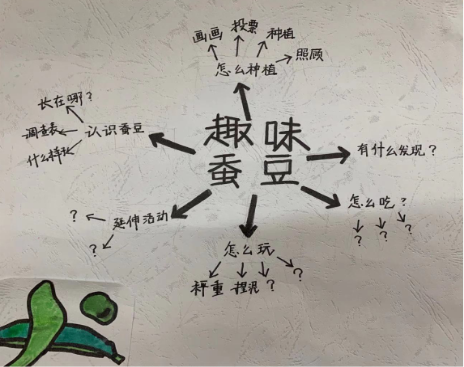 画画 投票 种植
照顾
怎么种植
长在哪？
调查表
什么样
认识蚕豆
趣味
蚕豆
有什么发现？
怎么吃？
？ ？ ？
延伸活动
？
？
怎么玩
秤重 捏泥 ？ ？